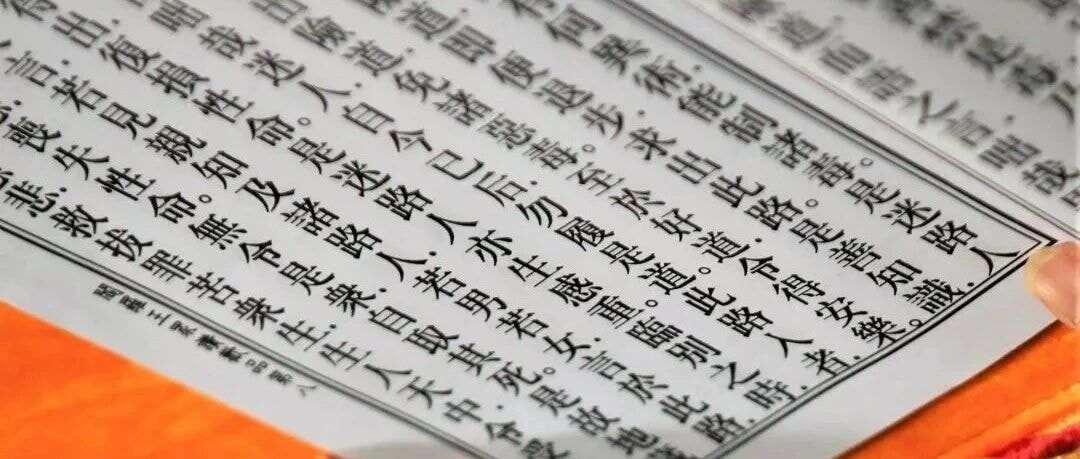 道.而語之言.咄哉
有何異術.能制諸毒。是迷路人
道.即便退步.求出此路。是善知識.
出險道.免諸惡毒。至於好道.令得安樂。
咄哉迷人.自今已后.勿履是道。此路入者.
得出.復損性命。是迷路人.亦生感重。臨別之時.
言.若見親知.及諸路人.若男若女.言於此路.
喪失性命。無令是衆.自取其死。是故地
悲.救拔罪苦衆生.生人天中.令受
閻羅王眾讚歎品第八